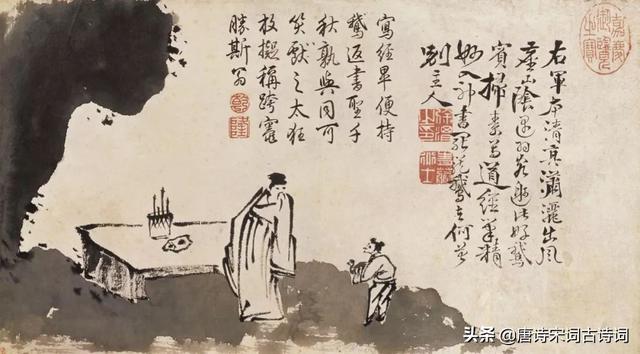 嘉慶御覽之寶
右軍本清真瀟灑出風
塵山陰遇羽客邀此好鵞
賓掃素寫道經筆精
妙入神書罷籠鵞去何曽
別主人
寫經畢便持
鵞返書聖千
秋孰與同可
笑獻之太狂
放擬稱跨竈
勝斯翁
乾隆
头条 @唐诗宋词古诗词